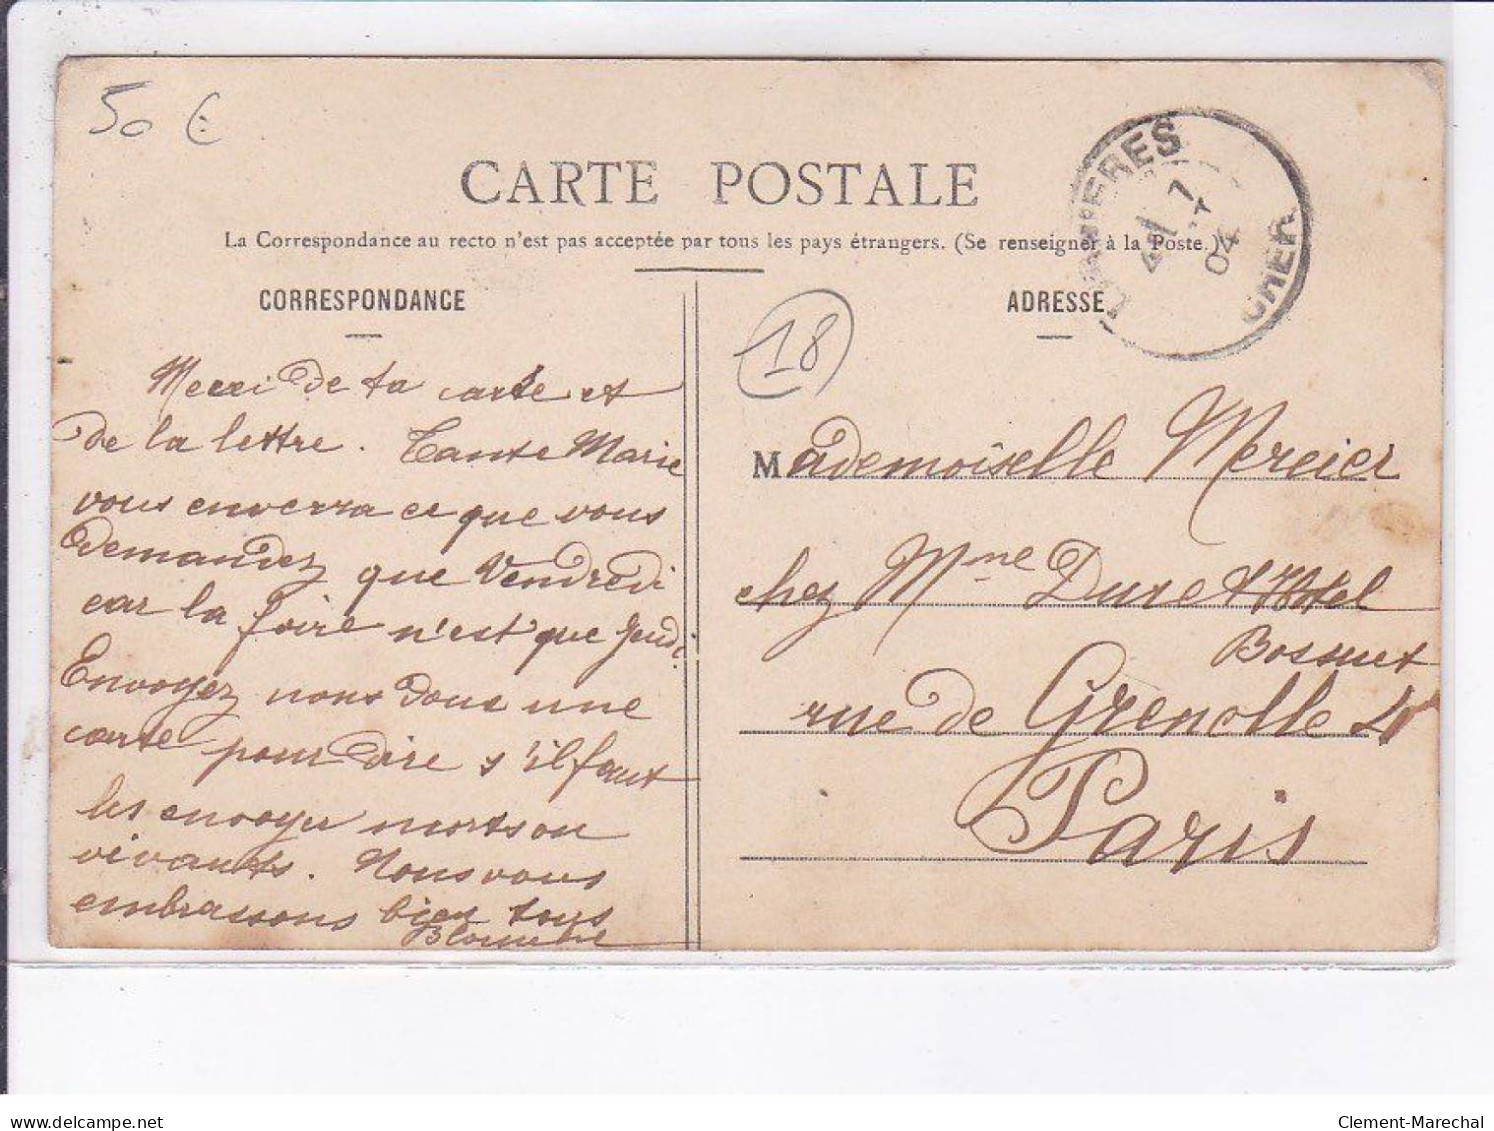 50 €
CARTE POSTALE
La Correspondance au recto n'est pas acceptée par tous les pays étrangers. (Se renseigner à la Poste.)
CORRESPONDANCE
ADRESSE
CHER
04
18
Merci de ta carte et
de la lettre. Tante Marie
vous enverra ce que vous
demandez que Vendredi
car la foire n'est que Jeudi.
Envoyez nous donc une
carte pour dire s'il faut
les envoyer morts ou
vivants. Nous vous
embrassons bien tous
Mademoiselle Mercier
chez Mme Duret Hotel
Bossuet
rue de Grenelle
Paris
delcampe.net
Clement-Marechal